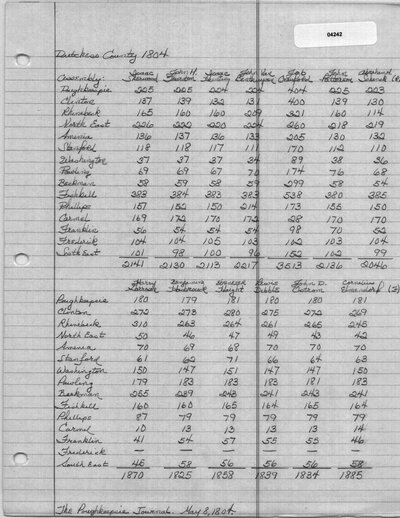 04242
Dutchess County 1804
Isaac John H. Isaac John Van Job John Abraham
Assembly: Sherwood Benthuysen Crawford Patterson Schenk (R)
Poughkeepsie 225 225 224 224 404 225 223
Clinton 137 139 132 131 400 139 130
Rhinebeck 165 160 160 209 321 160 114
North East 226 222 220 224 260 218 219
Amenia 136 137 136 133 205 130 132
Stanford 118 118 117 111 170 112 110
Washington 37 37 37 34 89 38 36
Pawling 69 69 67 70 174 76 68
Beekman 58 59 58 59 299 58 54
Fishkill 383 384 383 383 538 380 385
Phillips 157 152 150 214 173 155 150
Carmel 169 172 170 172 28 170 170
Franklin 56 54 54 54 98 70 52
Frederick 104 104 105 103 102 103 104
South East 101 98 100 96 152 102 99
2141 2130 2113 2217 3513 2136 2046
Benjamin Ebenezer Lewis John D. Cornelius
Haight (F)
Poughkeepsie 180 179 181 180 180 181
Clinton 272 273 280 275 272 269
Rhinebeck 310 263 264 261 265 245
North East 50 46 47 49 43 42
Amenia 70 69 68 70 70 70
Stanford 61 62 71 66 64 63
Washington 150 147 151 147 147 150
Pawling 179 183 183 183 181 183
Beekman 255 239 243 241 243 241
Fishkill 160 160 165 164 165 164
Phillips 87 79 79 79 79 79
Carmel 10 13 13 13 13 14
Franklin 41 54 57 55 55 46
Frederick — — — — — —
South East 45 58 56 56 56 58
1870 1825 1858 1839 1834 1885
The Poughkeepsie Journal. May 8, 1804